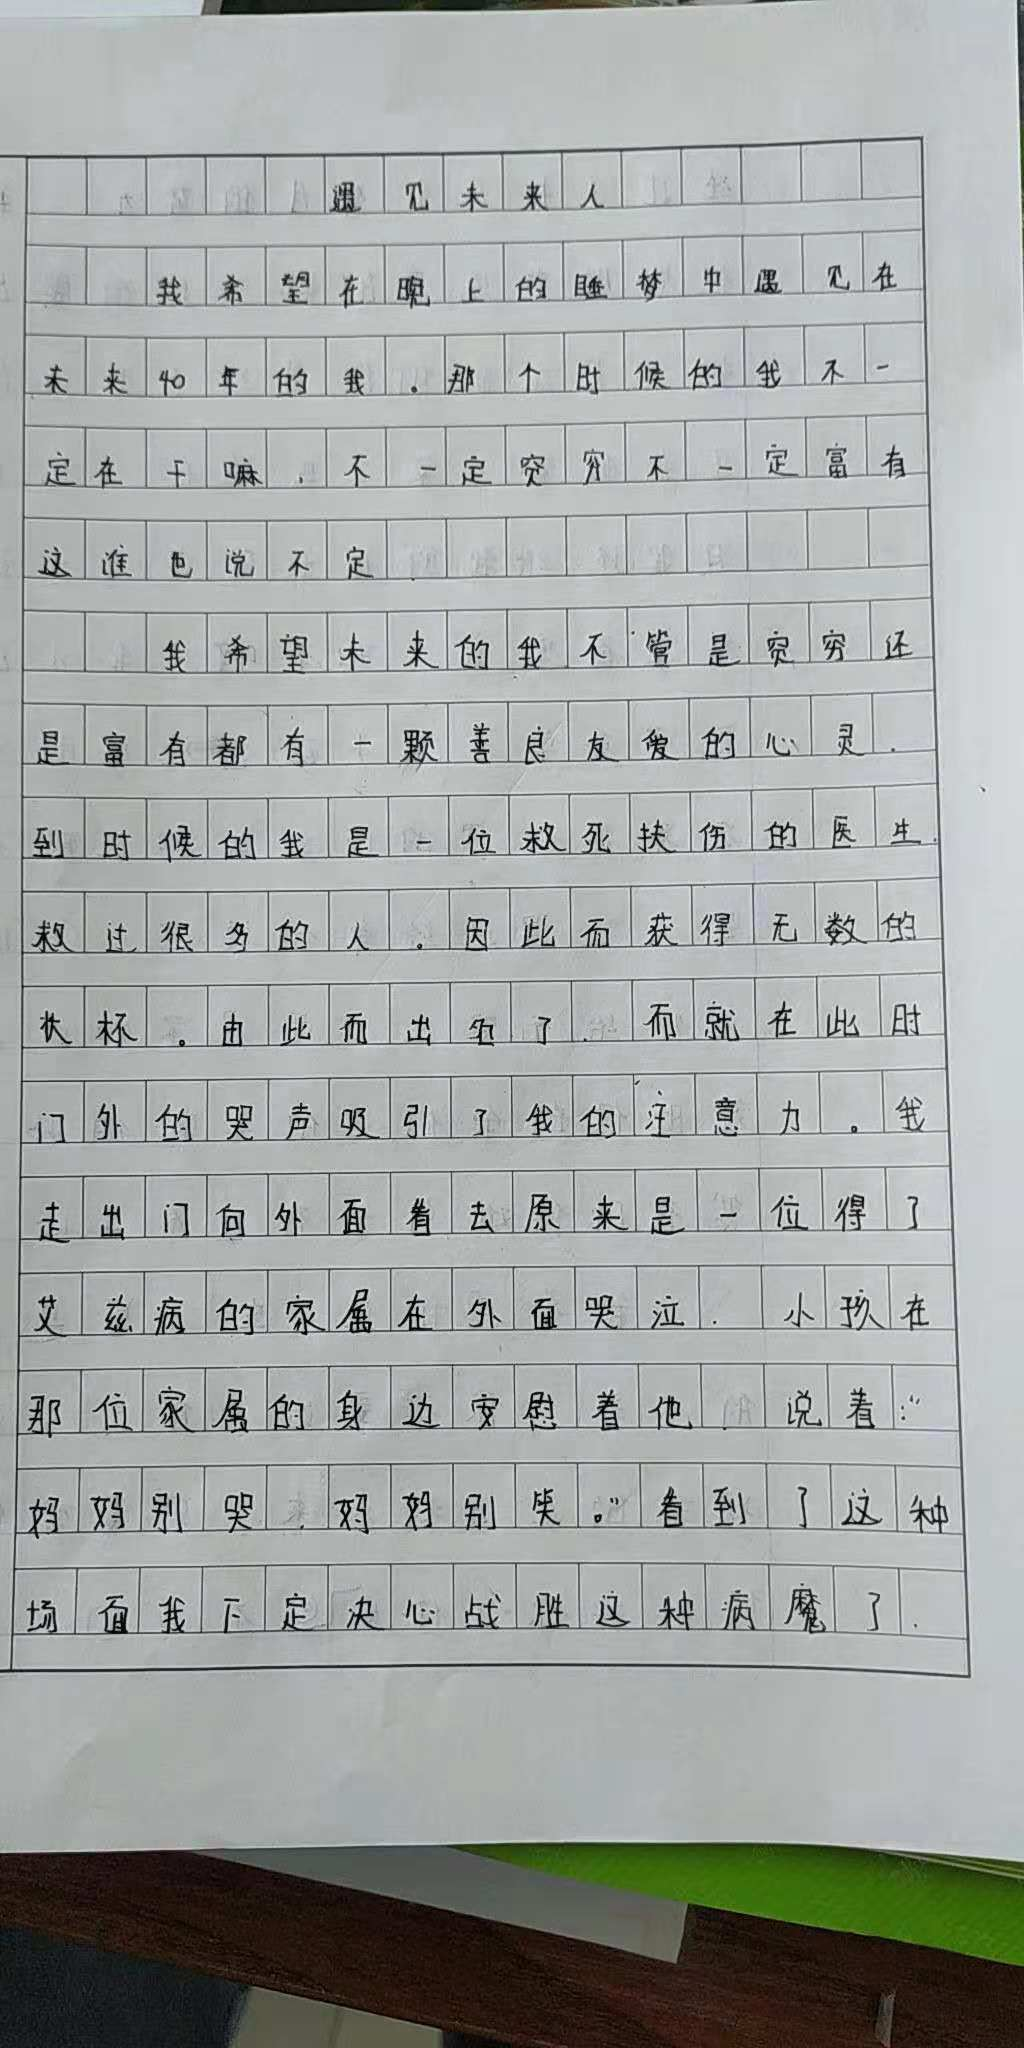 遇见未来人
我希望在晚上的睡梦中遇见在
未来40年的我。那个时候的我不一
定在干嘛,不一定穷不一定富有
这谁也说不定.
我希望未来的我不管是穷还
是富有都有一颗善良友爱的心灵.
到时候的我是一位救死扶伤的医生.
救过很多的人。因此而获得无数的
状杯。由此而出名了.而就在此时
门外的哭声吸引了我的注意力。我
走出门向外面看去原来是一位得了
艾兹病的家属在外面哭泣.小孩在
那位家属的身边安慰着他,说着:“
妈妈别哭,妈妈别哭。”看到了这种
场面我下定决心战胜这种病魔了.